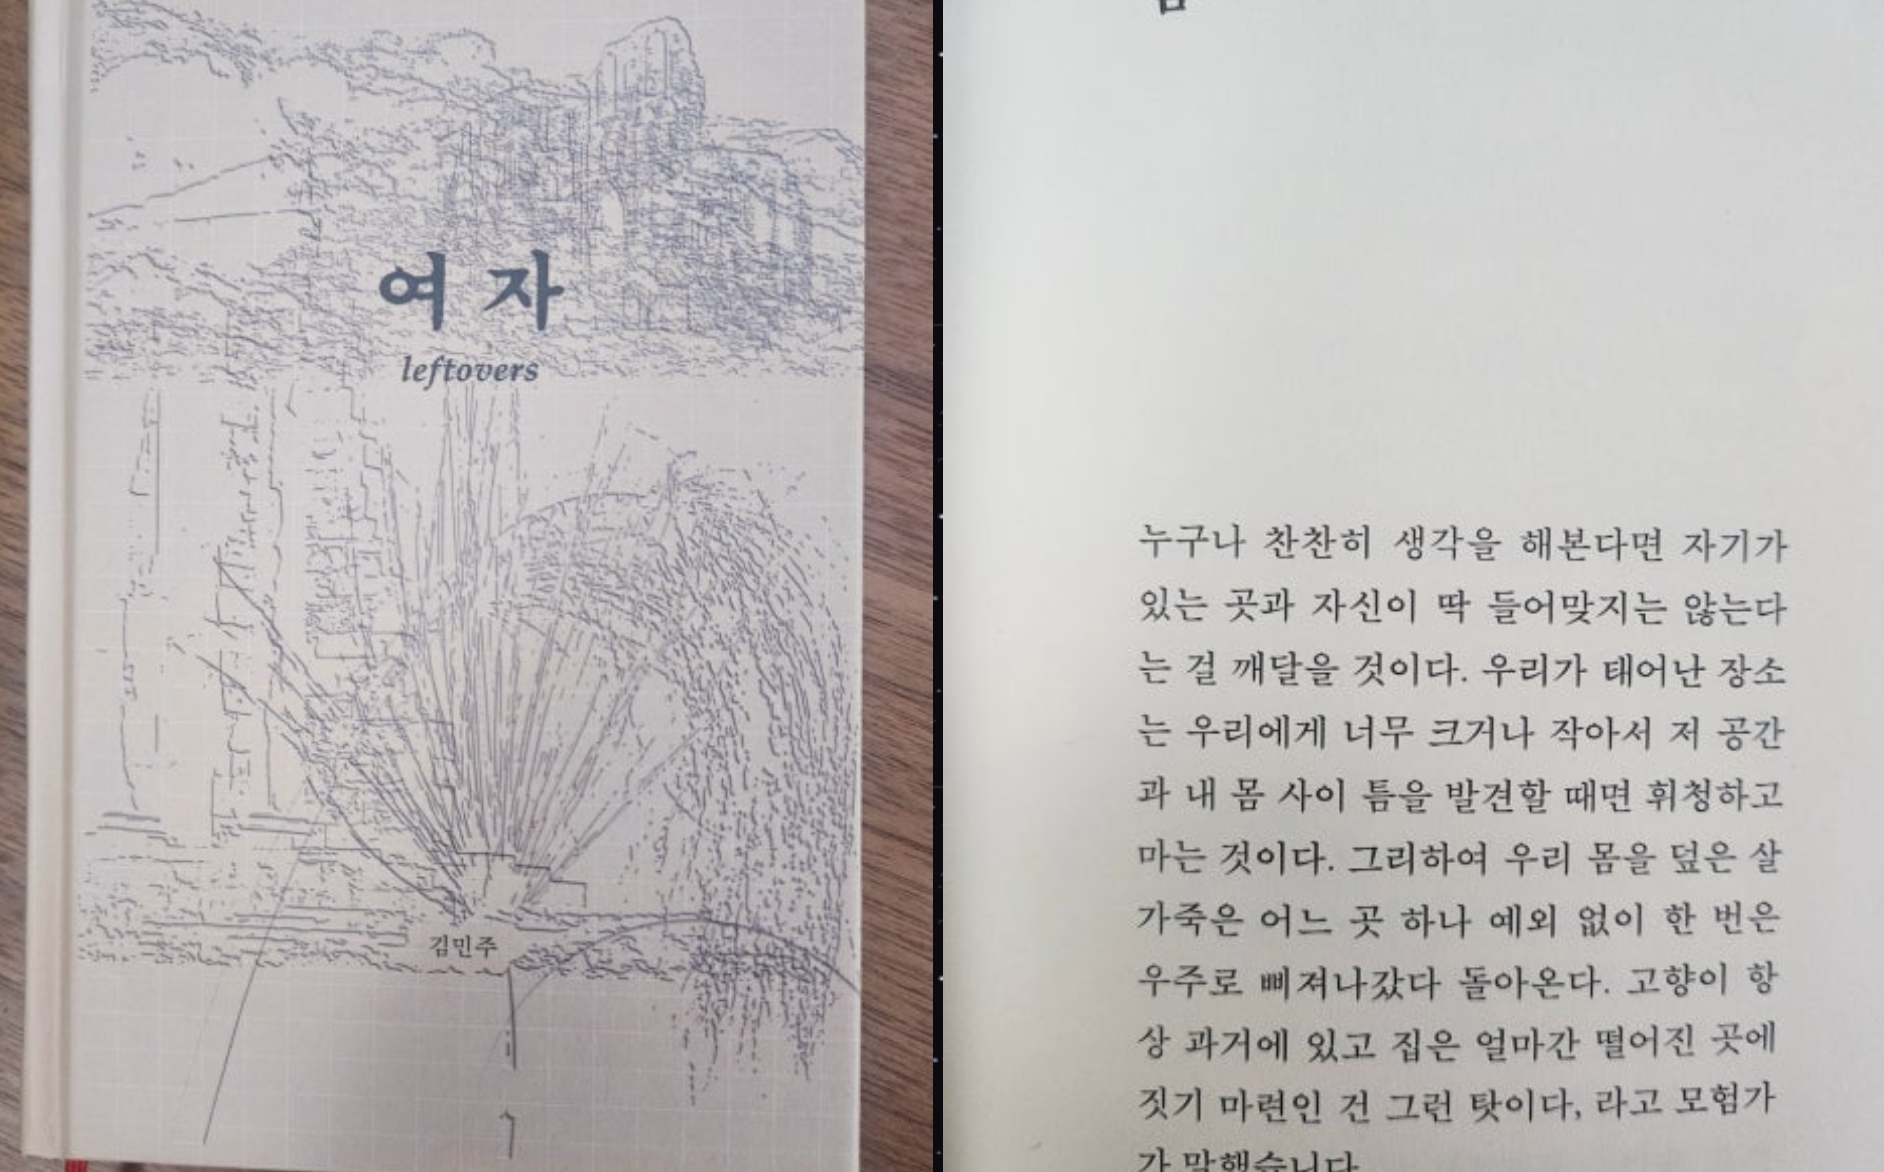 여자
leftovers
김민주
누구나 찬찬히 생각을 해본다면 자기가
있는 곳과 자신이 딱 들어맞지는 않는다
는 걸 깨달을 것이다. 우리가 태어난 장소
는 우리에게 너무 크거나 작아서 저 공간
과 내 몸 사이 틈을 발견할 때면 휘청하고
마는 것이다. 그리하여 우리 몸을 덮은 살
가죽은 어느 곳 하나 예외 없이 한 번은
우주로 삐져나갔다 돌아온다. 고향이 항
상 과거에 있고 집은 얼마간 떨어진 곳에
짓기 마련인 건 그런 탓이다, 라고 모험가
가 말했습니다.